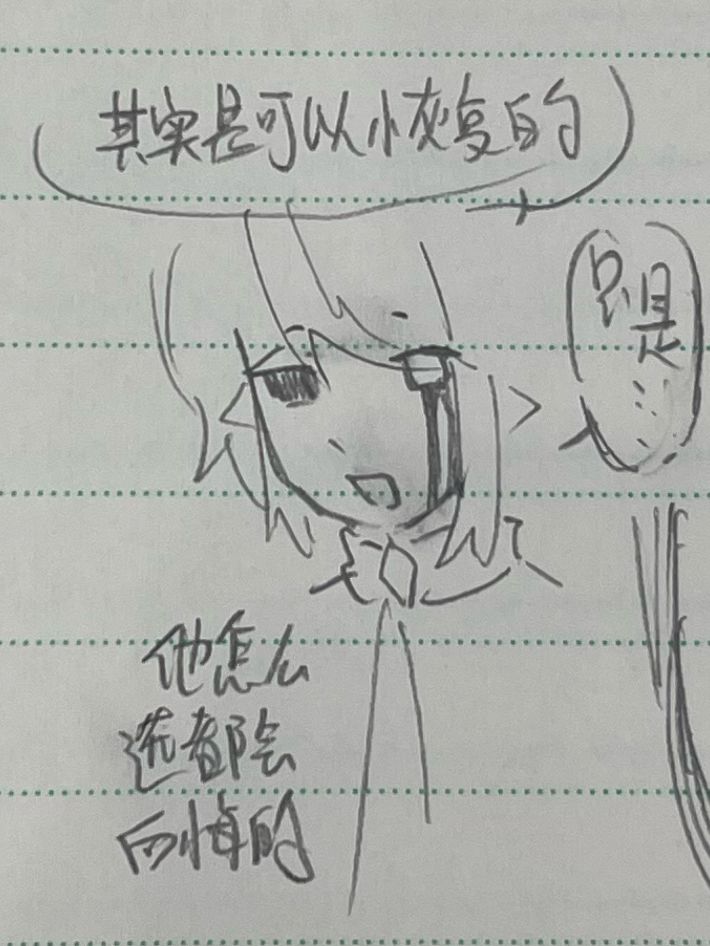 其实是可以恢复的
只是……
他怎么
选都会
后悔的